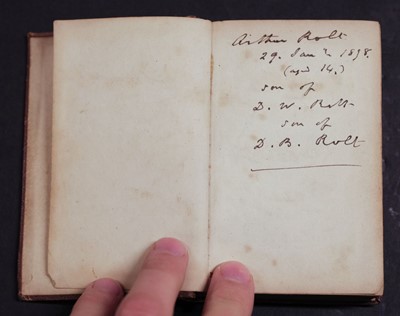 Arthur Rolt
29. Jan 1898.
(aged 14.)
son of
D. W. Rolt
son of
D. B. Rolt